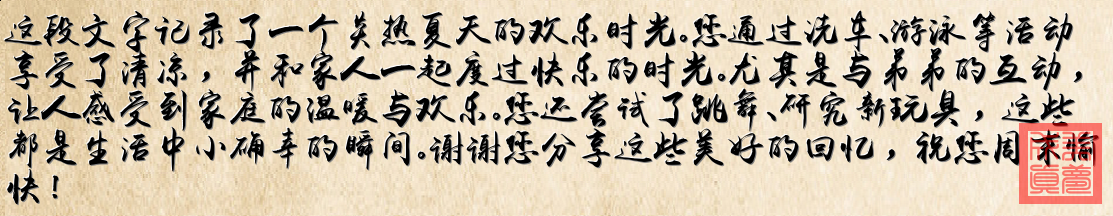 这段文字记录了一个炎热夏天的欢乐时光。您通过洗车、游泳等活动
享受了清凉，并和家人一起度过快乐的时光。尤其是与弟弟的互动，
让人感受到家庭的温暖与欢乐。您还尝试了跳舞、研究新玩具，这些
都是生活中小确幸的瞬间。谢谢您分享这些美好的回忆，祝您周末愉
快！